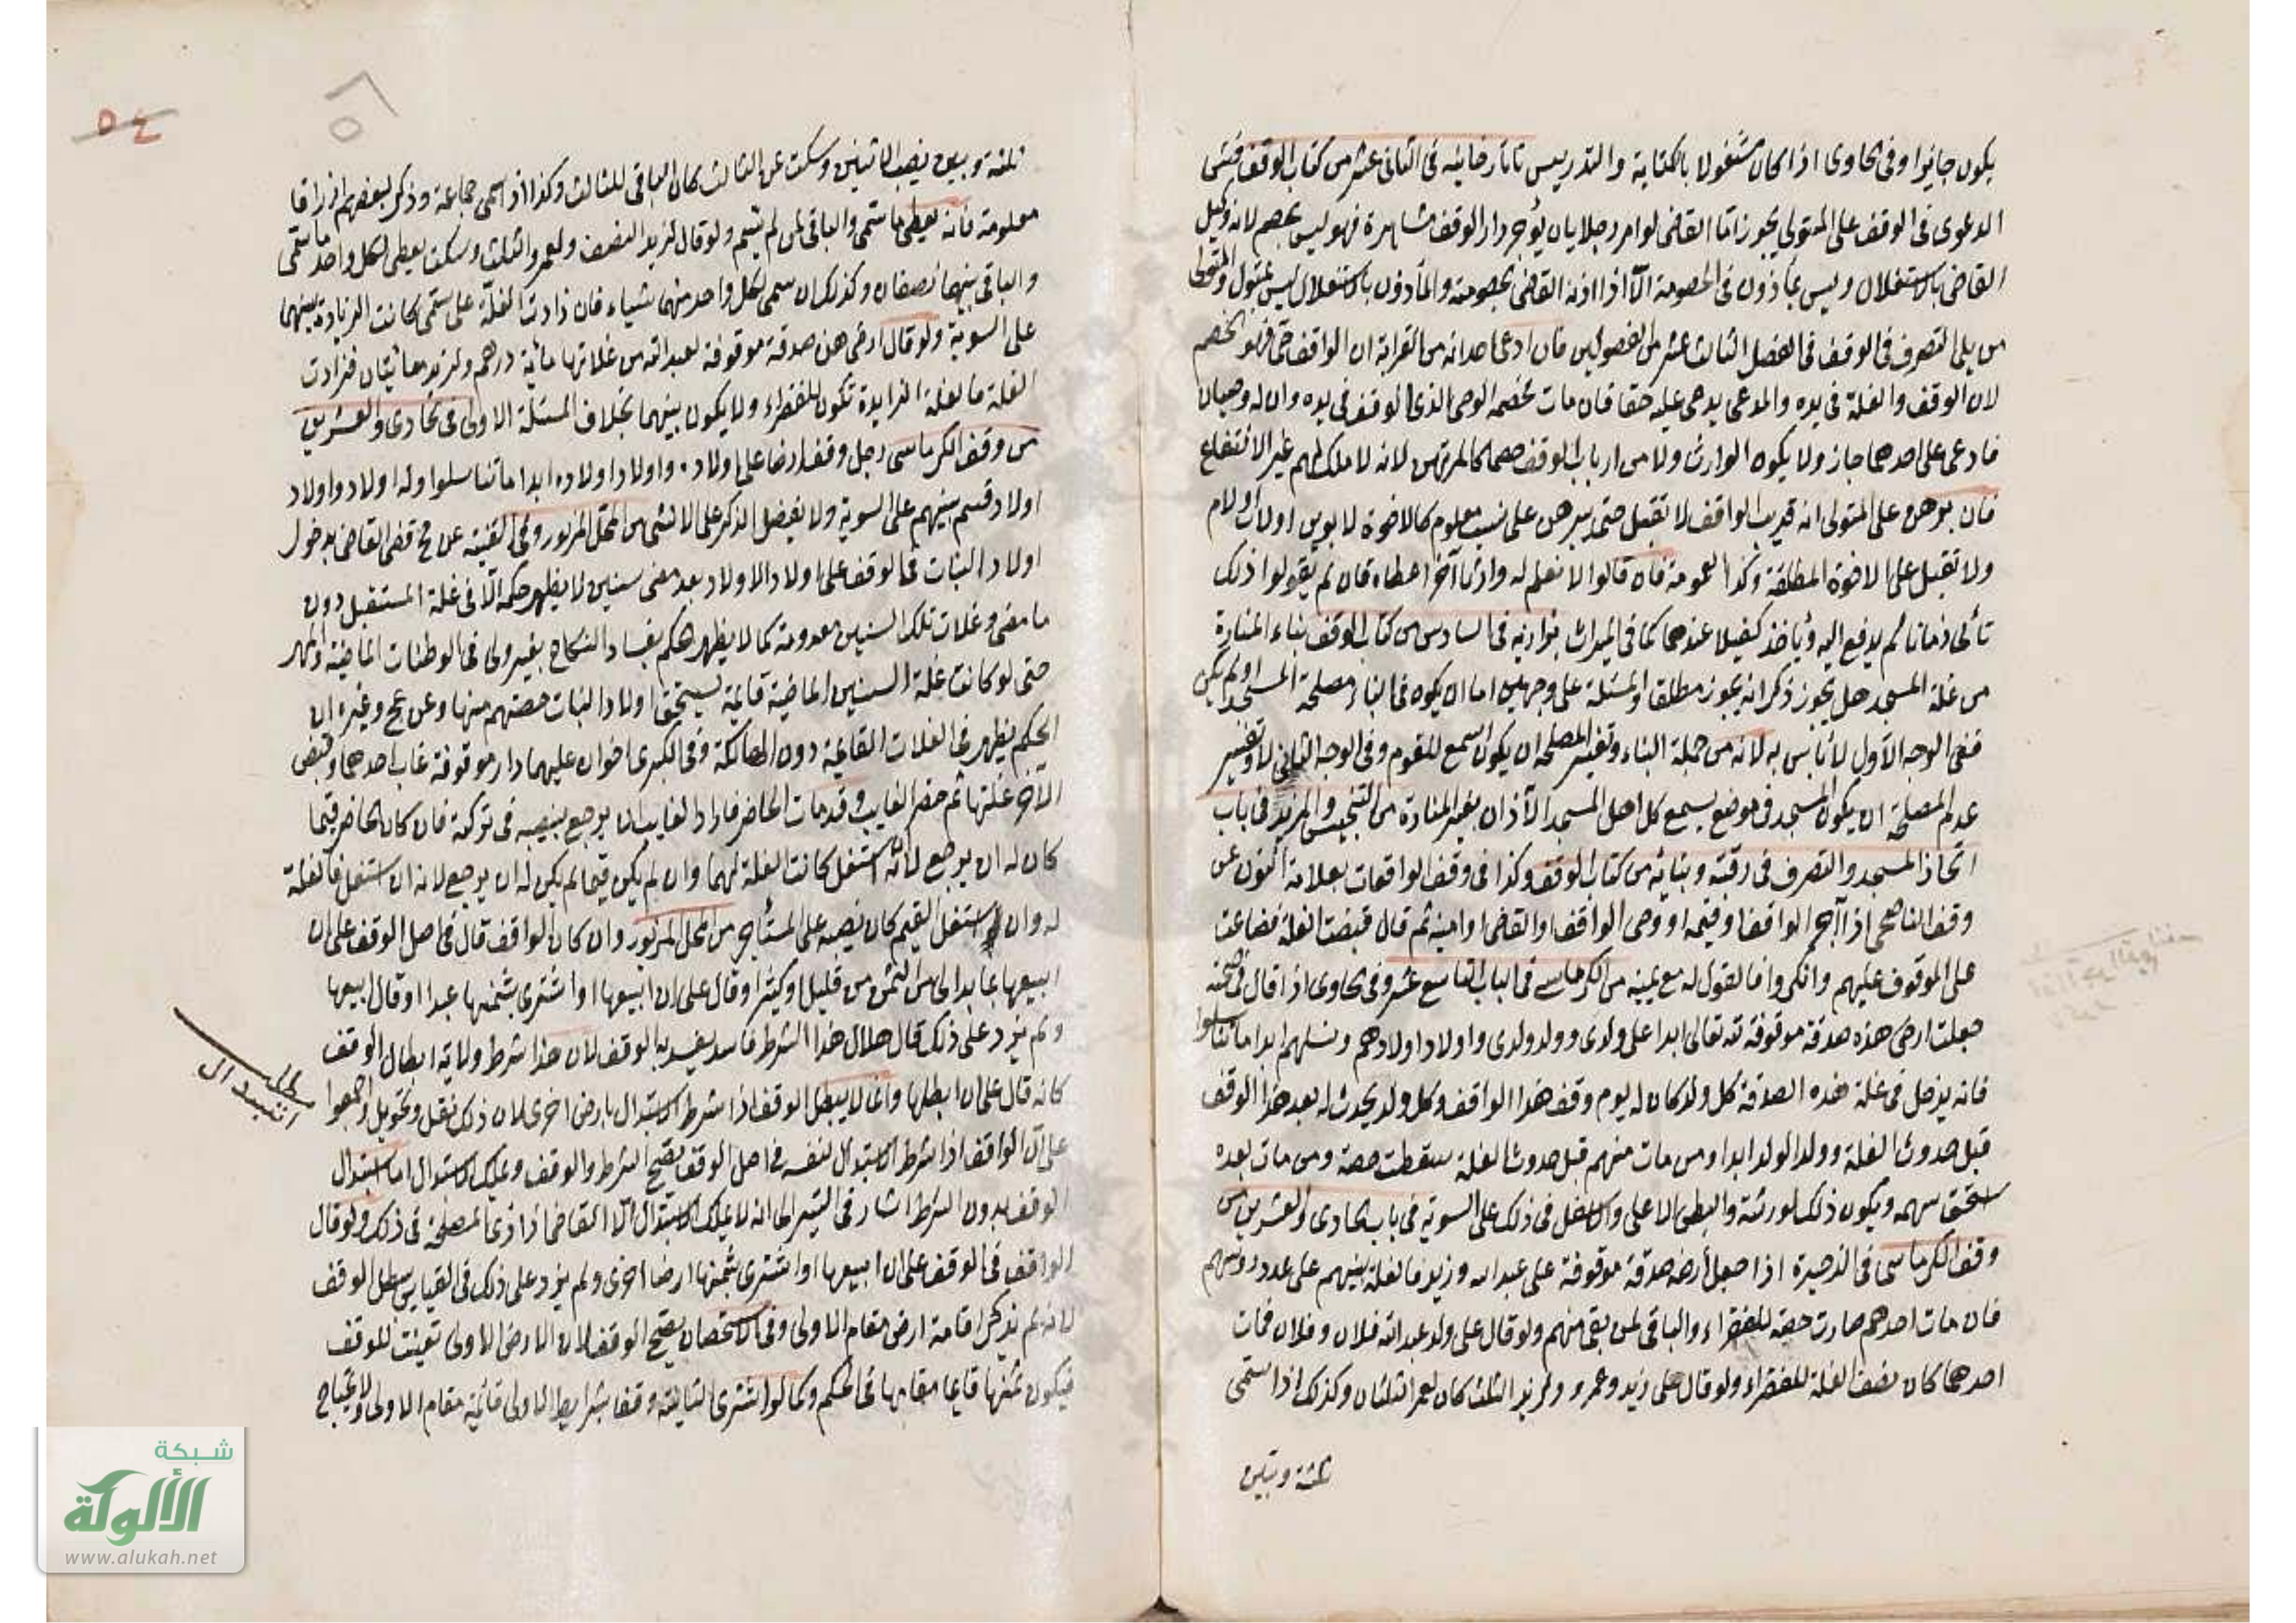 يكون جائزا وفى الحاوى اذا كان مشغولا بالكتابة والتدريس تاتارخانيه فى الثانى عشر من كتاب الوقف فتسمع
الدعوى فى الوقف على المتولى يجوز اما القاضى لو امر رجلا بان يؤجر دار الوقف مشاهرة فهو ليس بخصم لانه وكيل
القاضى بالاستغلال وليس بمأذون فى الخصومة الا اذا اذنه القاضى بخصومته والمأذون بالاستغلال ليس بمتول والمتولى
من يلى التصرف فى الوقف فى الفصل الثالث عشر من الفصولين فان ادعى احد انه من القرابة ان الواقف حى فهو الخصم
لان الوقف والغلة فى يده والمدعى يدعى عليه حقا فان مات خصمه الوصى الذى الوقف فى يده وان له وصيان
فادعى على احدهما جاز ولا يكون الوارث ولا من ارباب الوقف خصما كالمرتهن لانه لا ملك لهم غير الانتفاع
فان برهن على المتولى انه قريب الواقف لا تقبل حتى يبرهن على نسب معلوم كالاخوة لابوين او لاب او لام
ولا تقبل على الاخوة المطلقة وكذا العمومة فان قالوا لا نعلم له وارثا آخر اعطاه فان لم يقولوا ذلك
تأنى زمانا ثم يدفع اليه ويأخذ كفيلا عندهما كما فى الميراث بزازيه فى السادس من كتاب الوقف بناء المنارة
من غلة المسجد هل يجوز ذكر انه يجوز مطلقا والمسئلة على وجهين اما ان يكون فى البناء مصلحة المسجد او لم يكن
ففى الوجه الاول لا بأس به لانه من جملة البناء وتفسير المصلحة ان يكون اسمع للقوم وفى الوجه الثانى لا وتفسير
عدم المصلحة ان يكون المسجد فى موضع يسمع كل اهل المسجد الاذان بغير المنارة من التجنيس والمزيد فى باب
اتخاذ المسجد والتصرف فى رقبته وبنائه من كتاب الوقف وكذا فى وقف الواقعات بعلامة النون عن
وقف الناصحى اذا آجر الواقف او قيمه او وصى الواقف او القاضى او امينه ثم قال قبضت الغلة فضاعت
على الموقوف عليهم وانكروا فالقول له مع يمينه من الكرماسى فى الباب التاسع عشر وفى الحاوى اذا قال فى صحته
جعلت ارضى هذه صدقة موقوفة لله تعالى ابدا على ولدى وولد ولدى واولاد اولادهم ونسلهم ابدا ما تناسلوا
فانه يدخل فى غلة هذه الصدقة كل ولد كان له يوم وقف هذا الواقف وكل ولد يحدث له بعد هذا الوقف
قبل حدوث الغلة وولد الولد ابدا ومن مات منهم قبل حدوث الغلة سقطت حصته ومن مات بعده
استحق سهمه ويكون ذلك لورثته والبطن الاعلى والاسفل فى ذلك على السوية فى باب الحادى والعشرين من
وقف الكرماسى فى الذخيرة اذا جعل أرضه صدقة موقوفة على عبد الله وزيد فالغلة بينهم على عدد رؤسهم
فان مات احدهم صارت حصته للفقراء والباقى لمن بقى منهم ولو قال على ولد عبد الله فلان وفلان فمات
احدهما كان نصف الغلة للفقراء ولو قال على زيد وعمرو ولزيد الثلث كان لعمرو الثلثان وكذلك اذا سمى
ثلثة وبين
٥٤
٥٦
ثلثة وبين نصيب الاثنين وسكت عن الثالث كان الباقى للثالث وكذا اذا سمى جماعة وذكر لبعضهم ارزاقا
معلومة فانه يعطى ما سمى والباقى لمن لم يسم ولو قال لزيد النصف ولعمرو الثلث وسكت يعطى لكل واحد ما سمى
والباقى بينهما نصفان وكذلك ان سمى لكل واحد منهما شياء فان زادت الغلة على ما سمى كانت الزيادة بينهما
على السوية ولو قال ارضى هذه صدقة موقوفة لعبد الله من غلاتها مائة درهم ولزيد مائتان فزادت
الغلة فالغلة الزايدة تكون للفقراء ولا يكون بينهما بخلاف المسئلة الاولى فى الحادى والعشرين
من وقف الكرماسى رجل وقف ارضا على اولاده واولاد اولاده ابدا ما تناسلوا وله اولاد واولاد
اولاد قسم بينهم على السوية ولا يفضل الذكر على الانثى من المحل المزبور وفى القنية عن مح قضى القاضى بدخول
اولاد البنات فى الوقف على اولاد الاولاد بعد مضى سنين لا يظهر حكمه الا فى غلة المستقبل دون
ما مضى وغلات تلك السنين معدومة كما لا يظهر حكم بفساد النكاح بغير ولى فى الوطئات الماضية والمهر
حتى لو كانت غلة السنين الماضية قايمة يستحق اولاد البنات حصتهم منها وعن عح وغيره ان
الحكم يظهر فى الغلات القايمة دون الهالكة وفى الكبرى اخوان عليهما دار موقوفة غاب احدهما وقبض
الآخر غلتها ثم حضر الغايب وقد مات الحاضر فاراد الغايب ان يرجع بنصيبه فى تركته فان كان الحاضر قيما
كان له ان يرجع لانه استغل كانت الغلة لهما وان لم يكن قيما لم يكن له ان يرجع لانه ان استغل فالغلة
له وان استغل القيم كان نصيبه على المستأجر من المحل المزبور وان كان الواقف قال فى اصل الوقف على ان
ابيعها بما بدا لى من الثمن من قليل او كثير او قال على ان ابيعها او اشترى بثمنها عبدا او قال ابيعها
ولم يزد على ذلك قال هلال هذا الشرط فاسد يفسد به الوقف لان هذا شرط ولاية ابطال الوقف
كانه قال على ان ابطلها وانما لا يبطل الوقف اذا شرط الاستبدال بارض اخرى لان ذلك نقل وتحويل واجمعوا
على ان الواقف اذا شرط الاستبدال لنفسه فى اصل الوقف يصح الشرط والوقف ويملك الاستبدال اما استبدال
الوقف بدون الشرط اشار فى السير الى انه لا يملك الاستبدال الا القاضى اذا رأى المصلحة فى ذلك ولو قال
الواقف فى الوقف على ان ابيعها او اشترى بثمنها ارضا اخرى ولم يزد على ذلك فى القياس يبطل الوقف
لانه لم يذكر اقامة ارض مقام الاولى وفى الاستحسان يصح الوقف لان الارض الاولى تعينت للوقف
فيكون ثمنها قايما مقامها فى الحكم وكما لو اشترى الثانية وقفا بشرايط الاولى قائمة مقام الاولى ولا يحتاج
شبكة
الألوكة
www.alukah.net